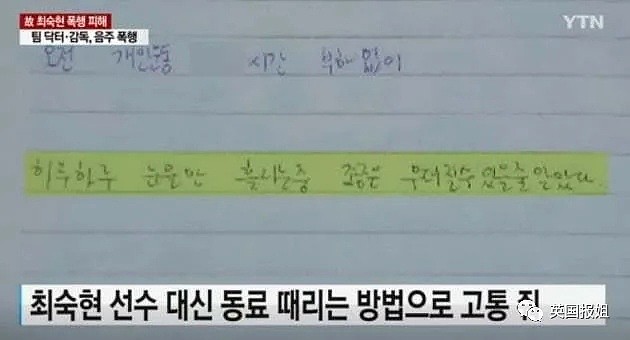 故 최숙현 폭행 피해
YTN
팀 닥터·감독, 음주 폭행
오전 개인운동 시간 부하 없이
하루하루 눈물만 흘리는중 조금은 무뎌질수 있을줄 알았다.
최숙현 선수 대신 동료 때리는 방법으로 고통 줘
英国报姐